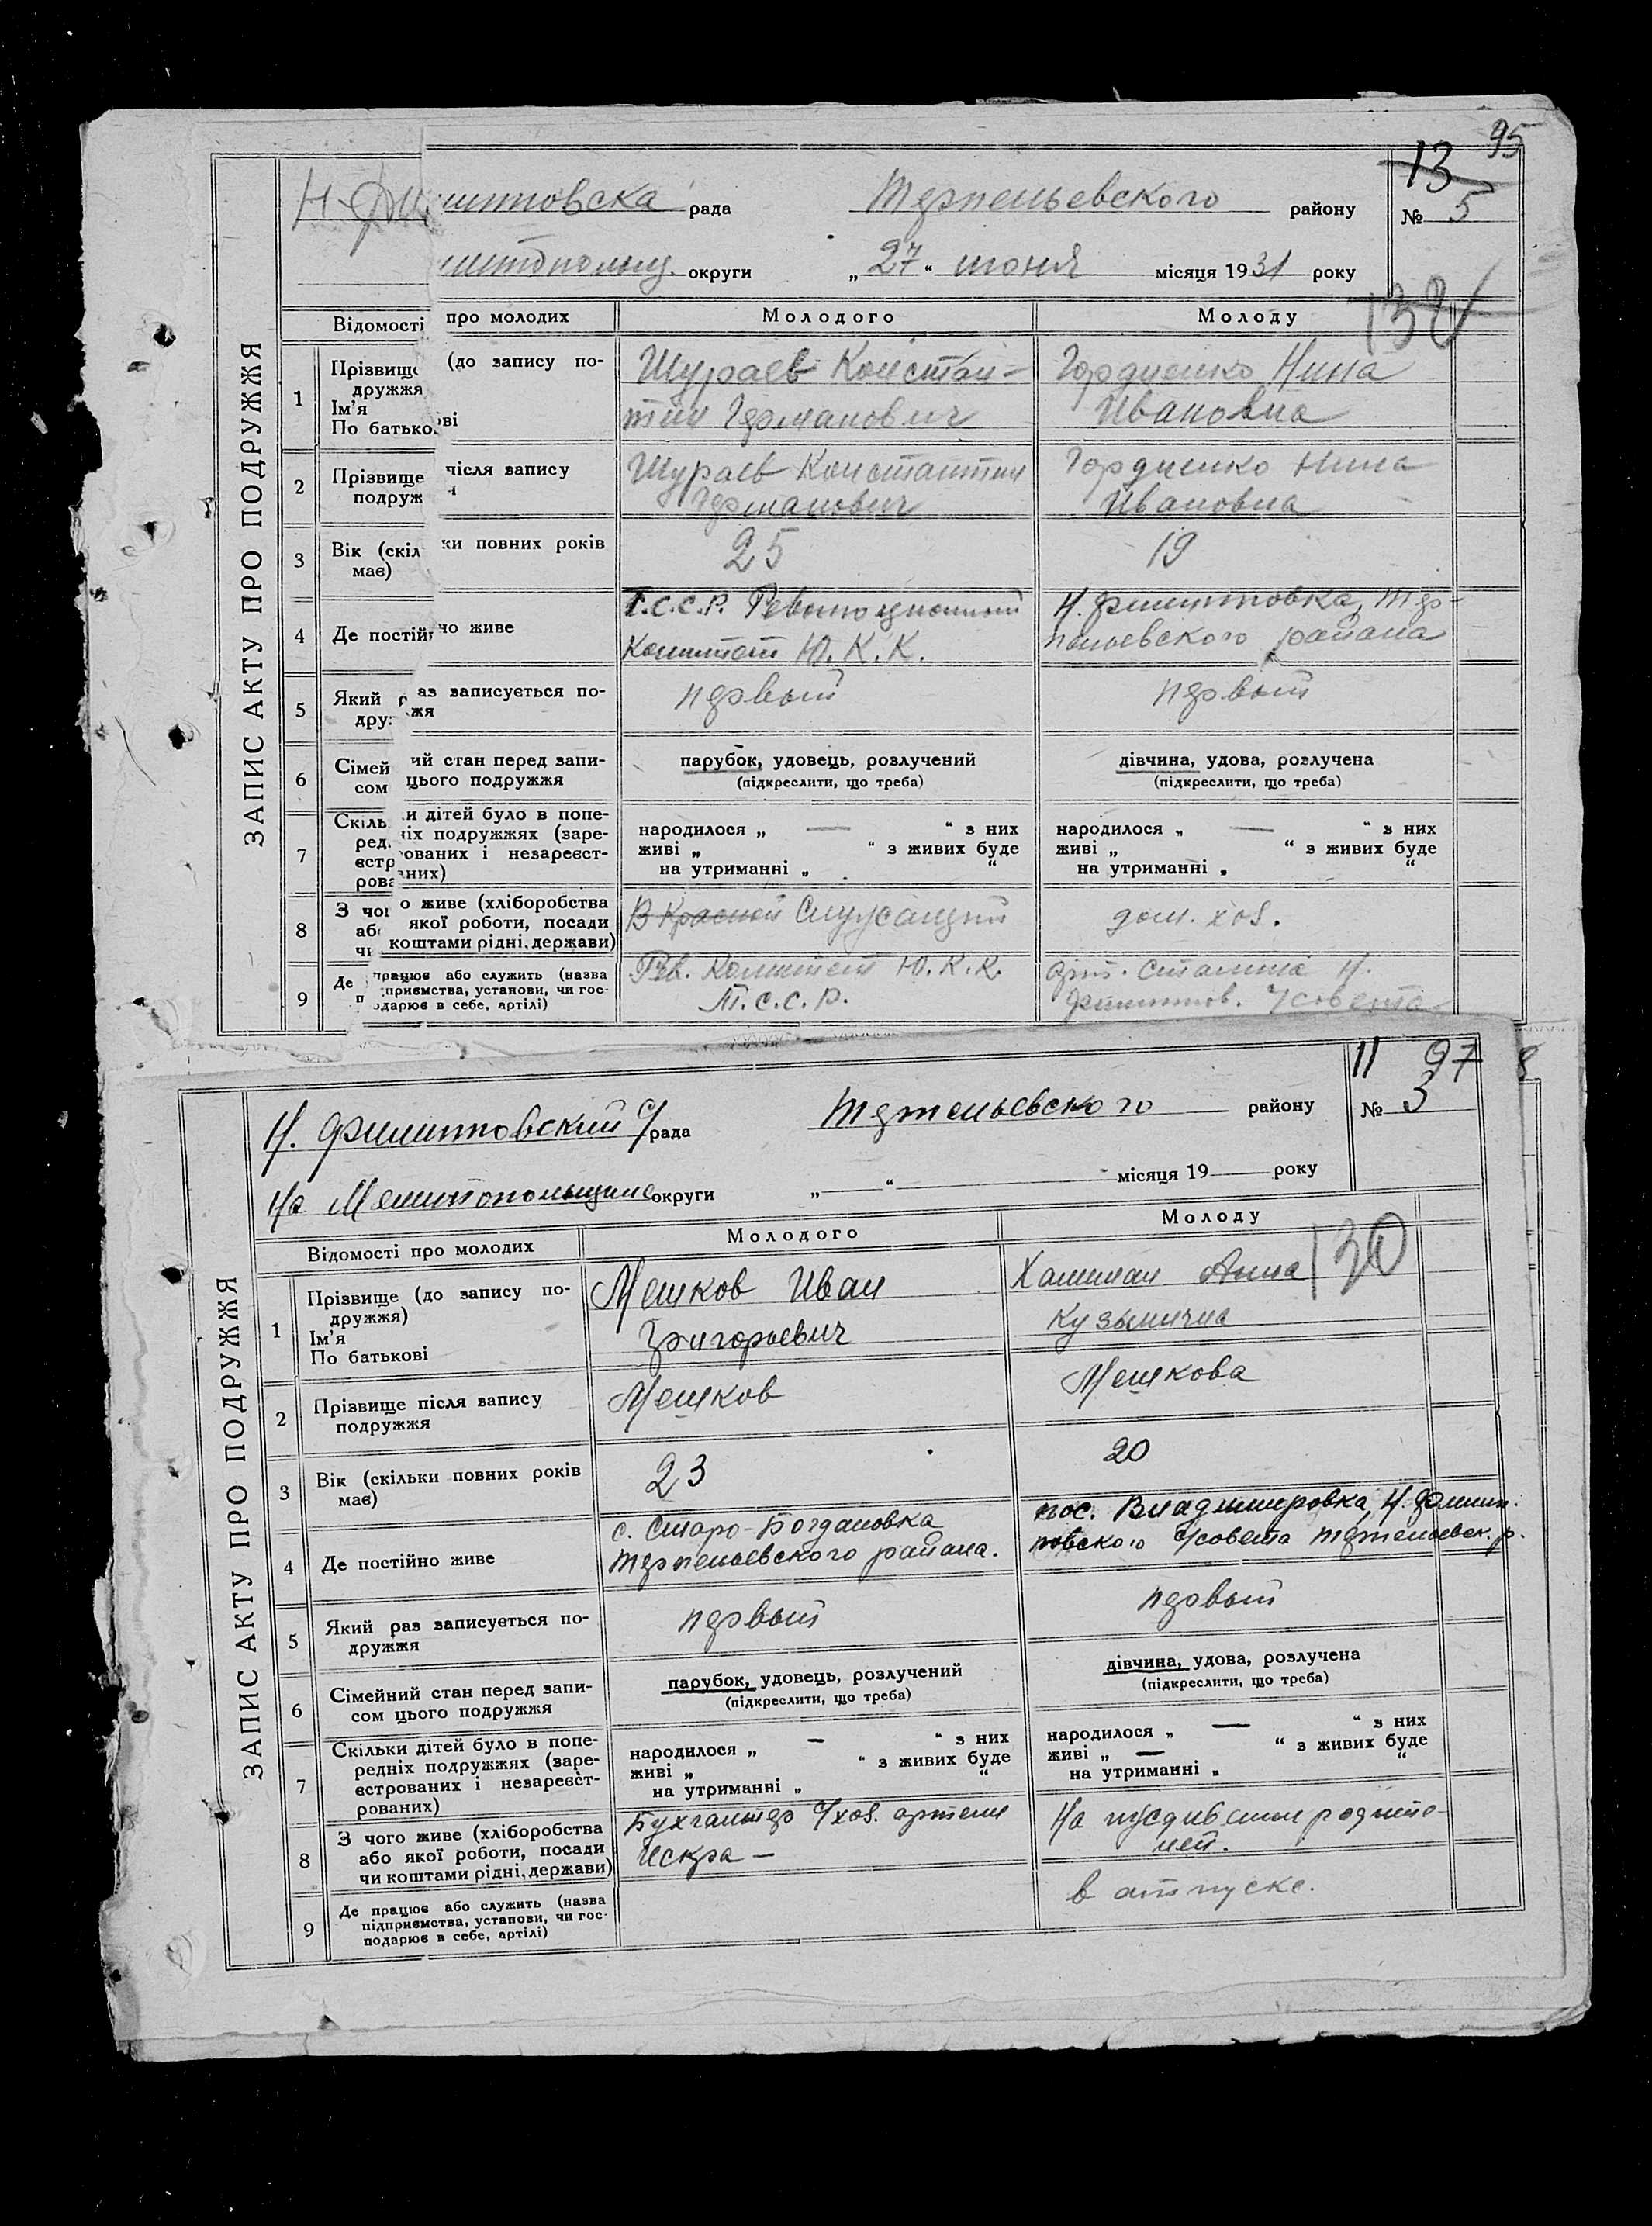 95
13
Н-Филипповска рада Терпеньевского району № 5
округи „27“ июня місяця 1931 року
130
ЗАПИС АКТУ ПРО ПОДРУЖЖЯ
Відомості про молодих Молодого Молоду
1 Прізвище (до запису по-
дружжя
Ім'я
По батькові
Шураев Констан-
тин Германович
Гордиенко Нина
Ивановна
2 Прізвище після запису
подруж
Шураев Константин
Германович
Гордиенко Нина
Ивановна
3 Вік (скільки повних років
має)
25
19
4 Де постійно живе
Т.С.С.Р. Революционный
Комитет Ю.К.К.
Н. Филипповка, Тер-
пеньевского района
5 Який раз записується по-
дружжя
первый
первый
6 Сімейний стан перед запи-
сом цього подружжя
парубок, удовець, розлучений
(підкреслити, що треба)
дівчина, удова, розлучена
(підкреслити, що треба)
7 Скільки дітей було в попе-
редніх подружжях (заре-
єстрованих і незареєст-
рованих)
народилося „ — “ з них
живі „ “ з живих буде
на утриманні „ “
народилося „ — “ з них
живі „ “ з живих буде
на утриманні „ “
8 З чого живе (хліборобства
або якої роботи, посади
чи коштами рідні, держави)
В Красной Служащий
дом. хоз.
9 Де працює або служить (назва
підприємства, установи, чи гос-
подарює в себе, артілі)
Рев. Комитет Ю.К.К.
Т.С.С.Р.
арт. Сталина Н.
Филиппов. с/совета
11 97 8
Н. Филипповский с/рада Терпеньевского району № 3
На Мелитопольщине округи „ “ місяця 19 року
130
ЗАПИС АКТУ ПРО ПОДРУЖЖЯ
Відомості про молодих Молодого Молоду
1 Прізвище (до запису по-
дружжя)
Ім'я
По батькові
Мешков Иван
Григорьевич
Анна
Кузьминична
2 Прізвище після запису
подружжя
Мешков
Мешкова
3 Вік (скільки повних років
має)
23
20
4 Де постійно живе
с. Старо-Богдановка
Терпеньевского района.
пос. Владимировка, Н. Филип-
повского с/совета Терпеньевск. р.
5 Який раз записується по-
дружжя
первый
первый
6 Сімейний стан перед запи-
сом цього подружжя
парубок, удовець, розлучений
(підкреслити, що треба)
дівчина, удова, розлучена
(підкреслити, що треба)
7 Скільки дітей було в попе-
редніх подружжях (заре-
єстрованих і незареєст-
рованих)
народилося „ — “ з них
живі „ “ з живих буде
на утриманні „ “
народилося „ — “ з них
живі „ — “ з живих буде
на утриманні „ “
8 З чого живе (хліборобства
або якої роботи, посади
чи коштами рідні, держави)
Бухгалтер с/хоз. артели
Искра —
На иждивении родите-
лей.
9 Де працює або служить (назва
підприємства, установи, чи гос-
подарює в себе, артілі)
в отпуске.